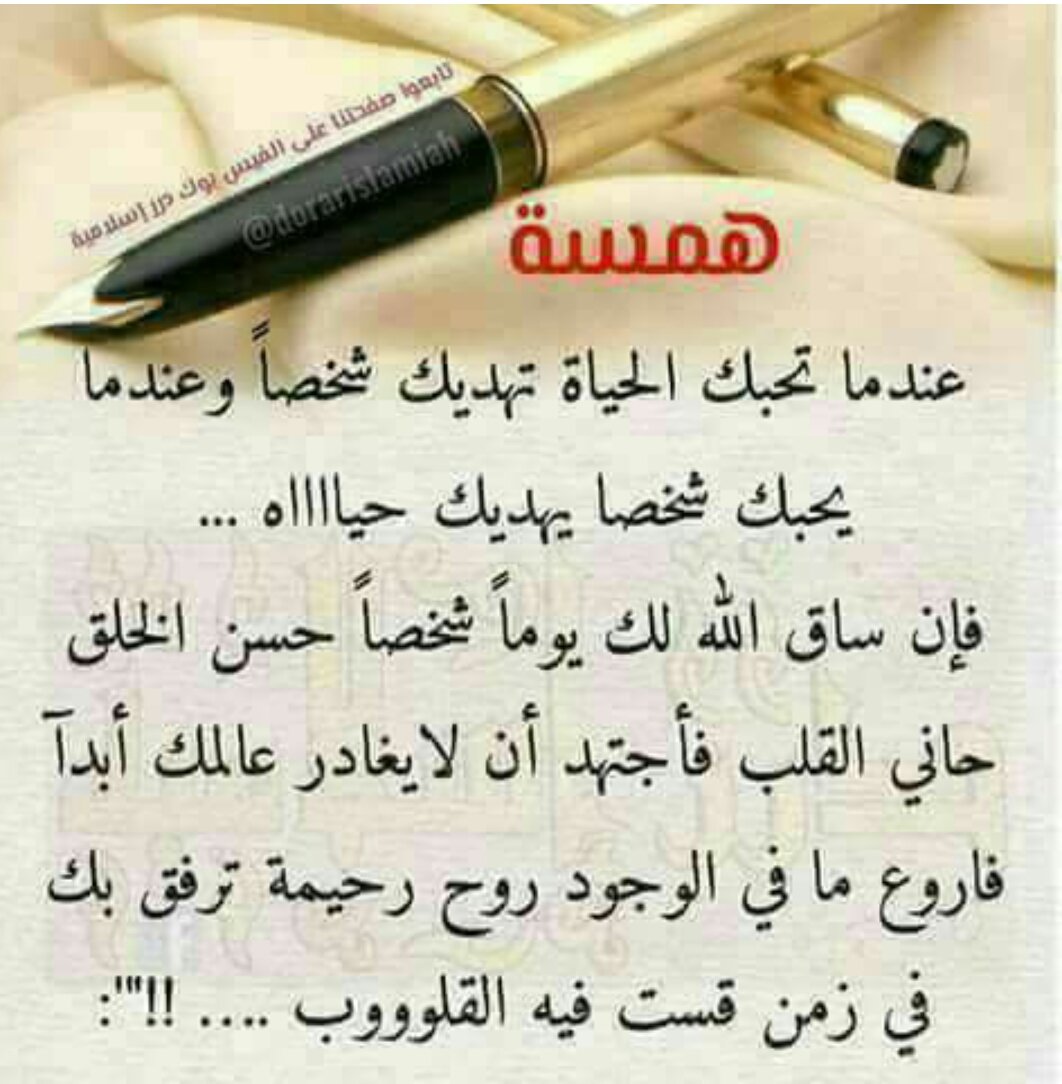 تابعوا صفحتنا على الفيس بوك درر إسلامية
@dorarislamiah
همسة
عندما تحبك الحياة تهديك شخصاً وعندما
يحبك شخصا يهديك حيااااه ...
فإن ساق الله لك يوماً شخصاً حسن الخلق
حاني القلب فأجتهد أن لايغادر عالمك أبدآ
فاروع ما في الوجود روح رحيمة ترفق بك
في زمن قست فيه القلوووب .... !!"':